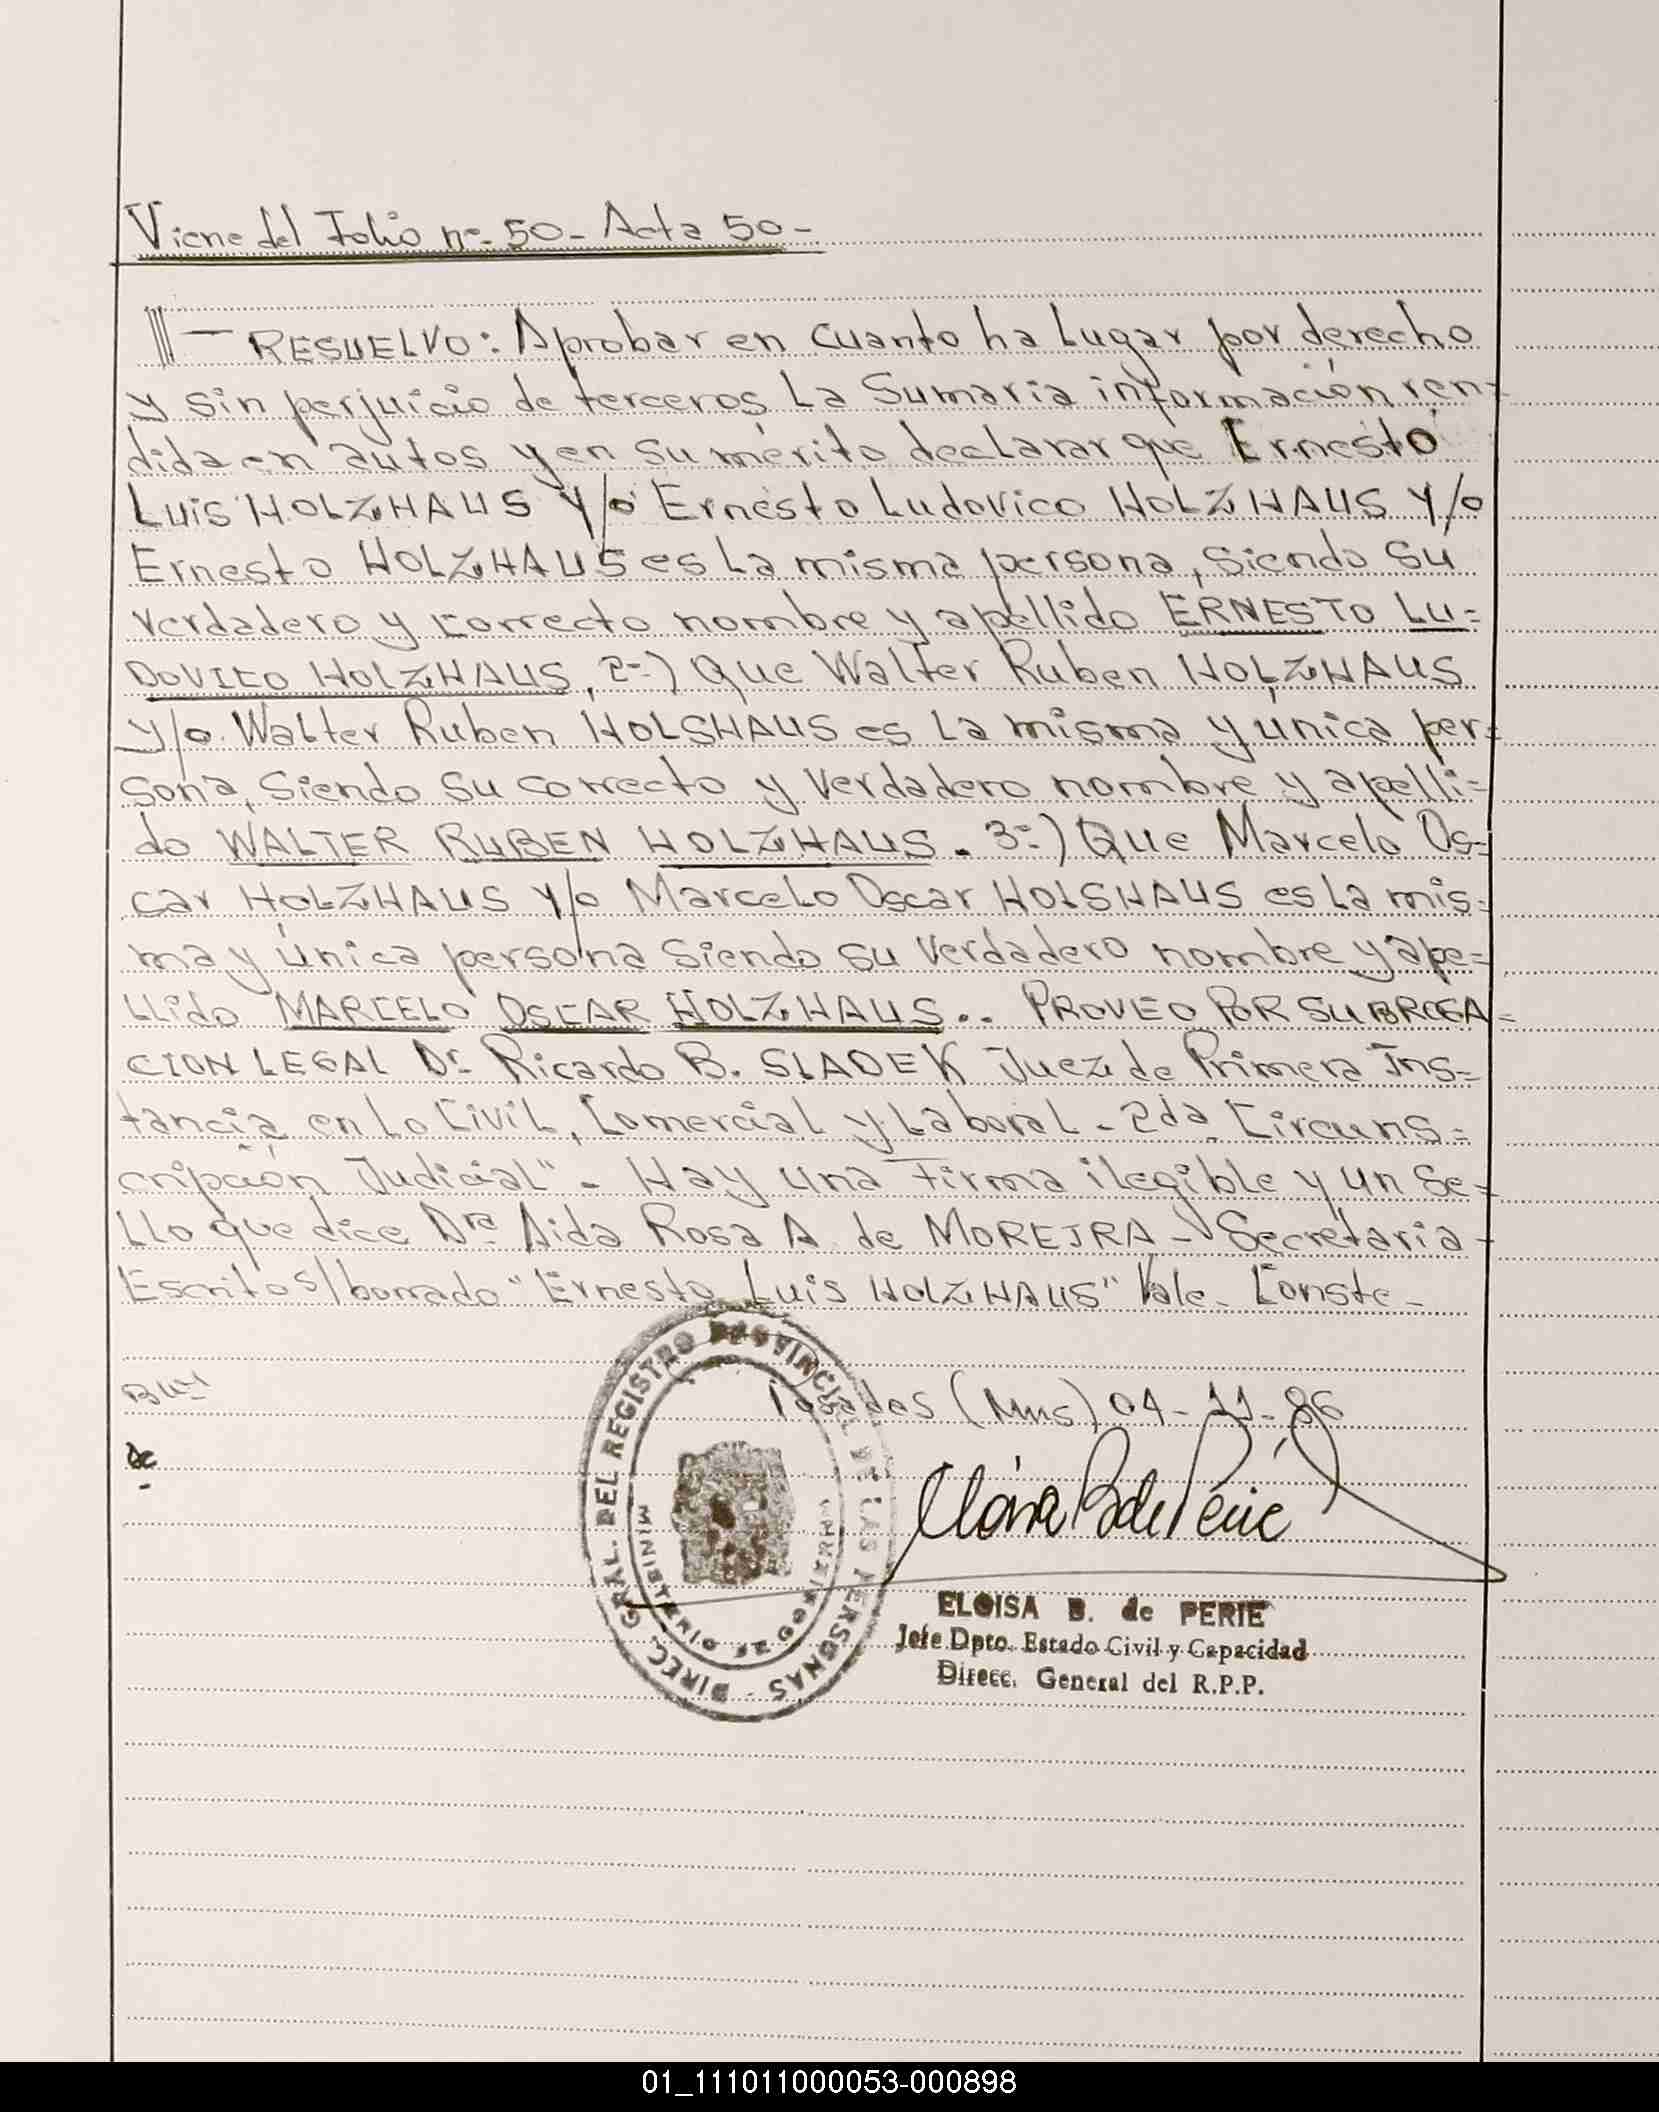 Viene del Folio nº 50 - Acta 50 -
RESUELVO: Aprobar en cuanto ha Lugar por derecho
y sin perjuicio de terceros La Sumaria información ren=
dida en autos y en su mérito declarar que Ernesto
Luis HOLZHAUS Y/o Ernesto Ludovico HOLZHAUS Y/o
Ernesto HOLZHAUS es La misma persona, siendo su
verdadero y correcto nombre y apellido ERNESTO LU=
DOVICO HOLZHAUS, 2-) Que Walter Ruben HOLZHAUS
y/o Walter Ruben HOLSHAUS es La misma y única per=
sona, siendo su correcto y verdadero nombre y apelli=
do WALTER RUBEN HOLZHAUS. 3-) Que Marcelo Os=
car HOLZHAUS Y/o Marcelo Oscar HOLSHAUS es La mis=
ma y única persona siendo su verdadero nombre y ape=
llido MARCELO OSCAR HOLZHAUS.. PROVEO POR SUBROGA=
CION LEGAL Dr. Ricardo B. SLADEK Juez de Primera Ins=
tancia en Lo Civil, Comercial y Laboral - 2da. Circuns=
cripción Judicial" - Hay una firma ilegible y un Se=
llo que dice Dra Aida Rosa A. de MOREIRA - Secretaria -
Escrito s/borrado "Ernesto Luis HOLZHAUS" Vale. Conste -
Posadas (Mns) 04-11-86
DIREC. GRAL. DEL REGISTRO PROVINCIAL DE LAS PERSONAS
MINISTERIO DE GOBIERNO
ELOISA B. de PERIE
Jefe Dpto. Estado Civil y Capacidad
Direcc. General del R.P.P.
01_111011000053-000898